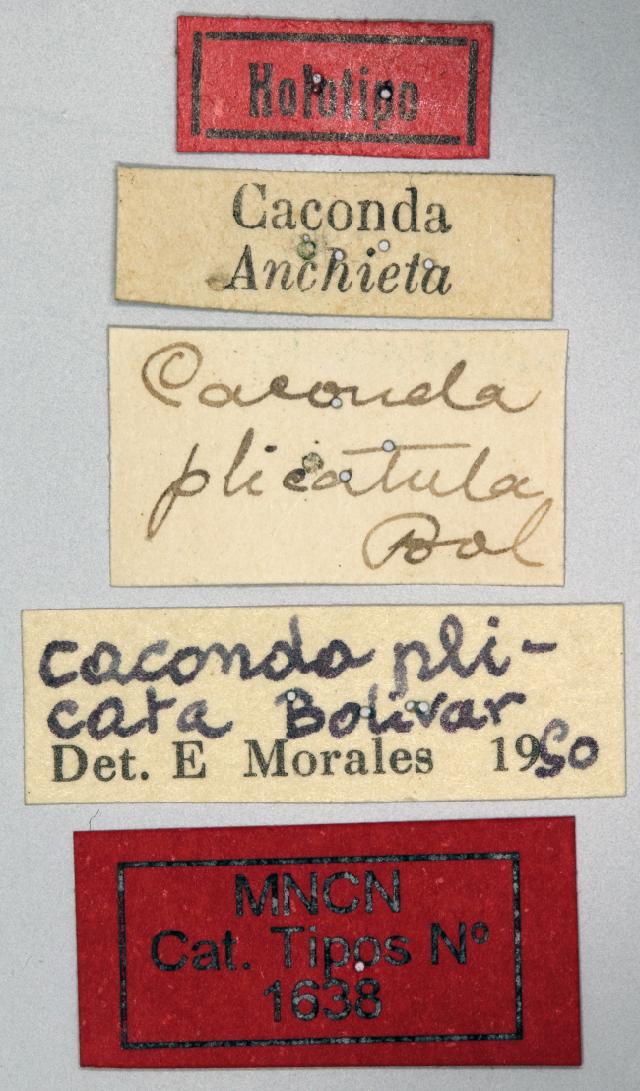 Holotipo
Caconda
Anchieta
Caconda
plicatula
Bol
caconda pli-
cata Bolivar
Det. E Morales 1950
MNCN
Cat. Tipos Nº
1638